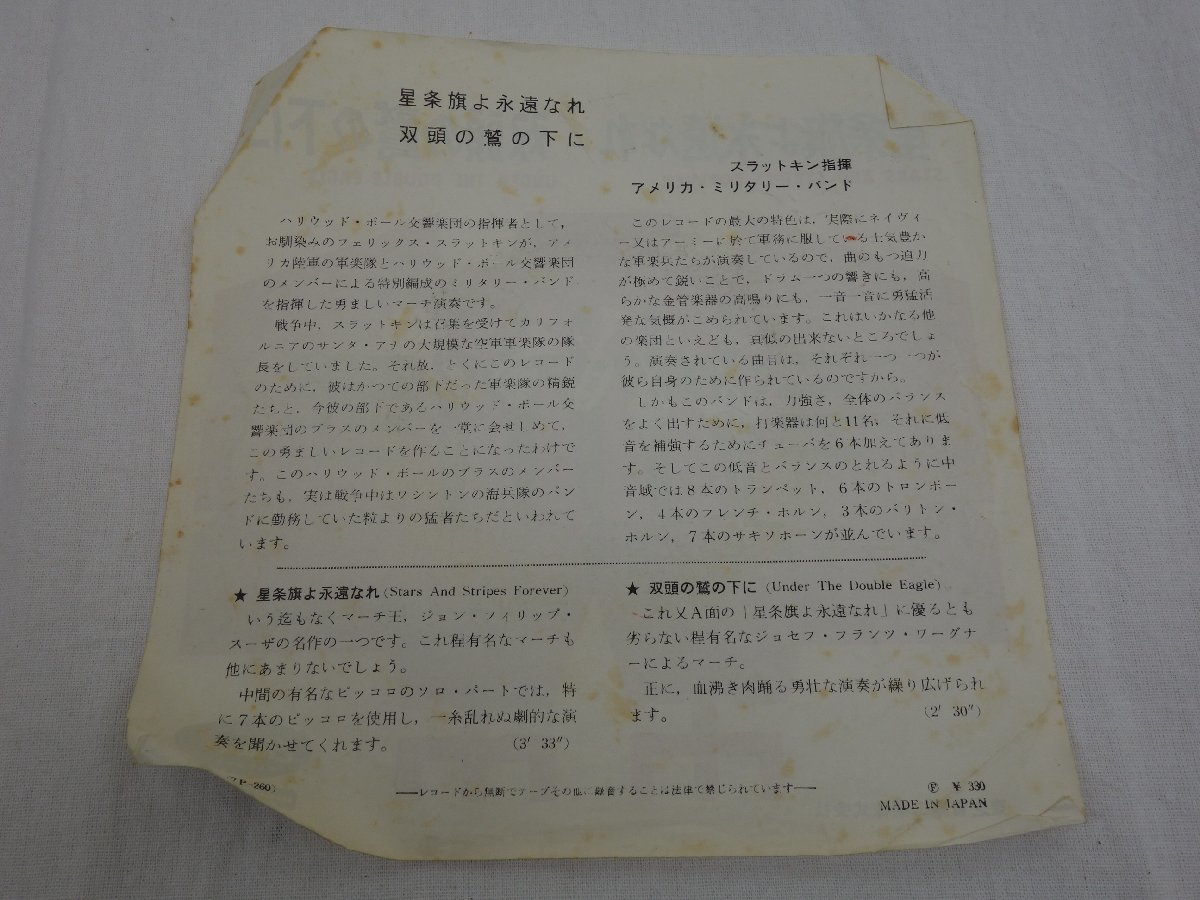 星条旗よ永遠なれ
双頭の鷲の下に
スラットキン指揮
アメリカ・ミリタリー・バンド
ハリウッド・ボール交響楽団の指揮者として，
お馴染みのフェリックス・スラットキンが，アメ
リカ陸軍の軍楽隊とハリウッド・ボール交響楽団
のメンバーによる特別編成のミリタリー・バンド
を指揮した勇ましいマーチ演奏です。
戦争中，スラットキンは召集を受けてカリフォ
ルニアのサンタ・アナの大規模な空軍軍楽隊の隊
長をしていました。それ故，とくにこのレコード
のために，彼はかつての部下だった軍楽隊の精鋭
たちと，今彼の部下であるハリウッド・ボール交
響楽団のブラスのメンバーを一堂に会せしめて，
この勇ましいレコードを作ることになったわけで
す。このハリウッド・ボールのブラスのメンバー
たちも，実は戦争中はワシントンの海兵隊のバン
ドに勤務していた粒よりの猛者たちだといわれて
います。
このレコードの最大の特色は，実際にネイヴィ
ー又はアーミーに於て軍務に服している士気豊か
な軍楽兵たちが演奏しているので，曲のもつ迫力
が極めて鋭いことで，ドラム一つの響きにも，高
らかな金管楽器の高鳴りにも，一音一音に勇猛活
発な気慨がこめられています。これはいかなる他
の楽団といえども，真似の出来ないところでしょ
う。演奏されている曲目は，それぞれ一つ一つが
彼ら自身のために作られているのですから。
しかもこのバンドは，力強さ，全体のバランス
をよく出すために，打楽器は何と11名，それに低
音を補強するためにチューバを6本加えてありま
す。そしてこの低音とバランスのとれるように中
音域では8本のトランペット，6本のトロンボー
ン，4本のフレンチ・ホルン，3本のバリトン・
ホルン，7本のサキソホーンが並んでいます。
★ 星条旗よ永遠なれ(Stars And Stripes Forever)
いう迄もなくマーチ王，ジョン・フィリップ・
スーザの名作の一つです。これ程有名なマーチも
他にあまりないでしょう。
中間の有名なピッコロのソロ・パートでは，特
に7本のピッコロを使用し，一糸乱れぬ劇的な演
奏を聞かせてくれます。 (3′ 33″)
★ 双頭の鷲の下に (Under The Double Eagle)
これ又A面の「星条旗よ永遠なれ」に優るとも
劣らない程有名なジョセフ・フランツ・ワーグナ
ーによるマーチ。
正に，血沸き肉踊る勇壮な演奏が繰り広げられ
ます。 (2′ 30″)
260)
――レコードから無断でテープその他に録音することは法律で禁じられています――
Ⓟ ￥ 330
MADE IN JAPAN